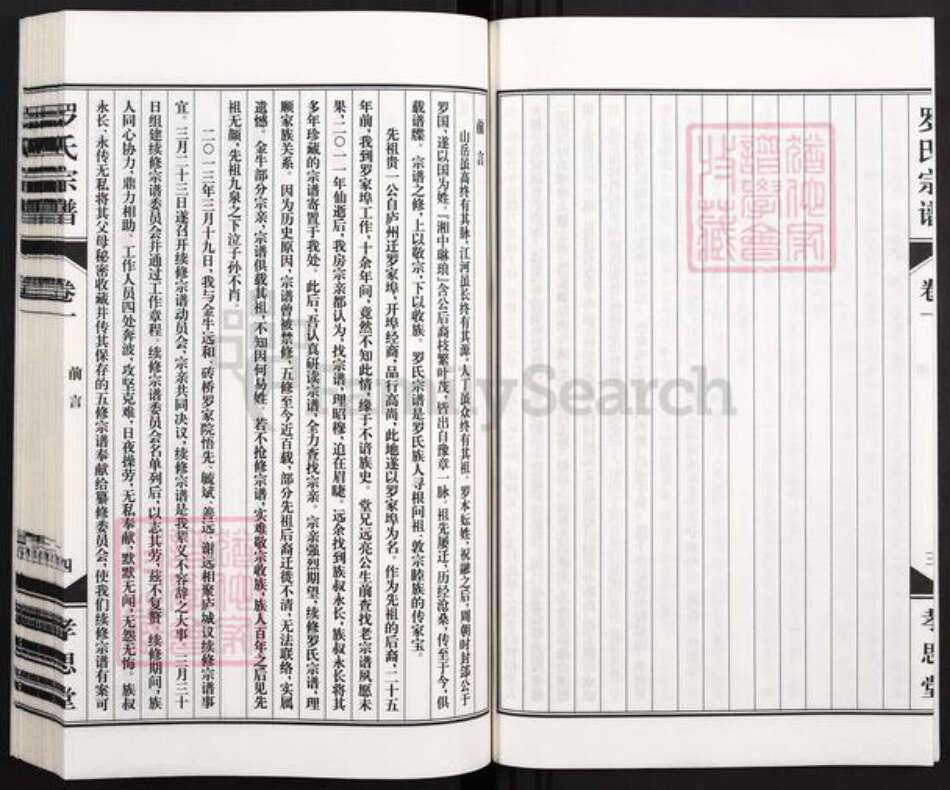 罗氏宗谱
卷一
三
孝思堂
前言
山岳虽高终有其脉，江河虽长终有其源，人丁虽众终有其祖。罗本妘姓，祝融之后，周朝时封部公于
罗国，遂以国为姓。『湘中琳琅』含公后裔枝繁叶茂，皆出自豫章一脉。祖先屡迁，历经沧桑，传至于今，俱
载谱牒。宗谱之修，上以敬宗，下以收族。罗氏宗谱是罗氏族人寻根问祖、敦宗睦族的传家宝。
先祖贵一公自庐州迁罗家埠，开埠经商，品行高尚，此地遂以罗家埠为名。作为先祖的后裔，二十五
年前，我到罗家埠工作，十余年间，竟然不知此情，缘于不谙族史。堂兄远亮公生前查找老宗谱夙愿未
果，二〇一一年仙逝后，我房宗亲都认为，找宗谱，理昭穆，迫在眉睫。远余找到族叔永长，族叔永长将其
多年珍藏的宗谱寄置于我处。此后，吾认真研读宗谱，全力查找宗亲。宗亲强烈期望，续修罗氏宗谱，理
顺家族关系。因为历史原因，宗谱曾被禁修，五修至今近百载，部分先祖后裔迁徙不清，无法联络，实属
遗憾。金牛部分宗亲，宗谱俱载其祖，不知因何易姓，若不抢修宗谱，实难敬宗收族，族人百年之后见先
祖无颜，先祖九泉之下泣子孙不肖。
二〇一三年三月十九日，我与金牛远和、砖桥罗家院悟先、毓斌、善远、谢远相聚庐城议续修宗谱事
宜。三月二十三日遂召开续修宗谱动员会，宗亲共同决议，续修宗谱是我辈义不容辞之大事，三月三十
日组建续修宗谱委员会并通过工作章程。续修宗谱委员会名单列后，以志其劳，兹不复赘。续修期间，族
人同心协力，鼎力相助。工作人员四处奔波，攻坚克难，日夜操劳，无私奉献，默默无闻，无怨无悔。族叔
永长、永传无私将其父母秘密收藏并传其保存的五修宗谱奉献给纂修委员会，使我们续修宗谱有案可
罗氏宗谱
卷一
前言
四
孝思堂
FamilySearch